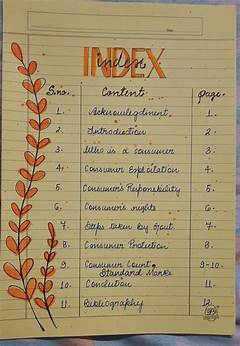 index
INDEX
S.no. Contents Page.
1. Acknowlegdment 1.
2. Introduction 2.
3. Who is a consumer 3.
4. Consumer Exploitation 4.
5. Consumer's Responsibility 5.
6. Consumer's rights 6.
7. Steps taken by Govt. 7.
8. Consumer Protection 8.
9. Consumer Court & 9-10.
Standard Marks
10. Conclution 11.
11. Bibliography 12.